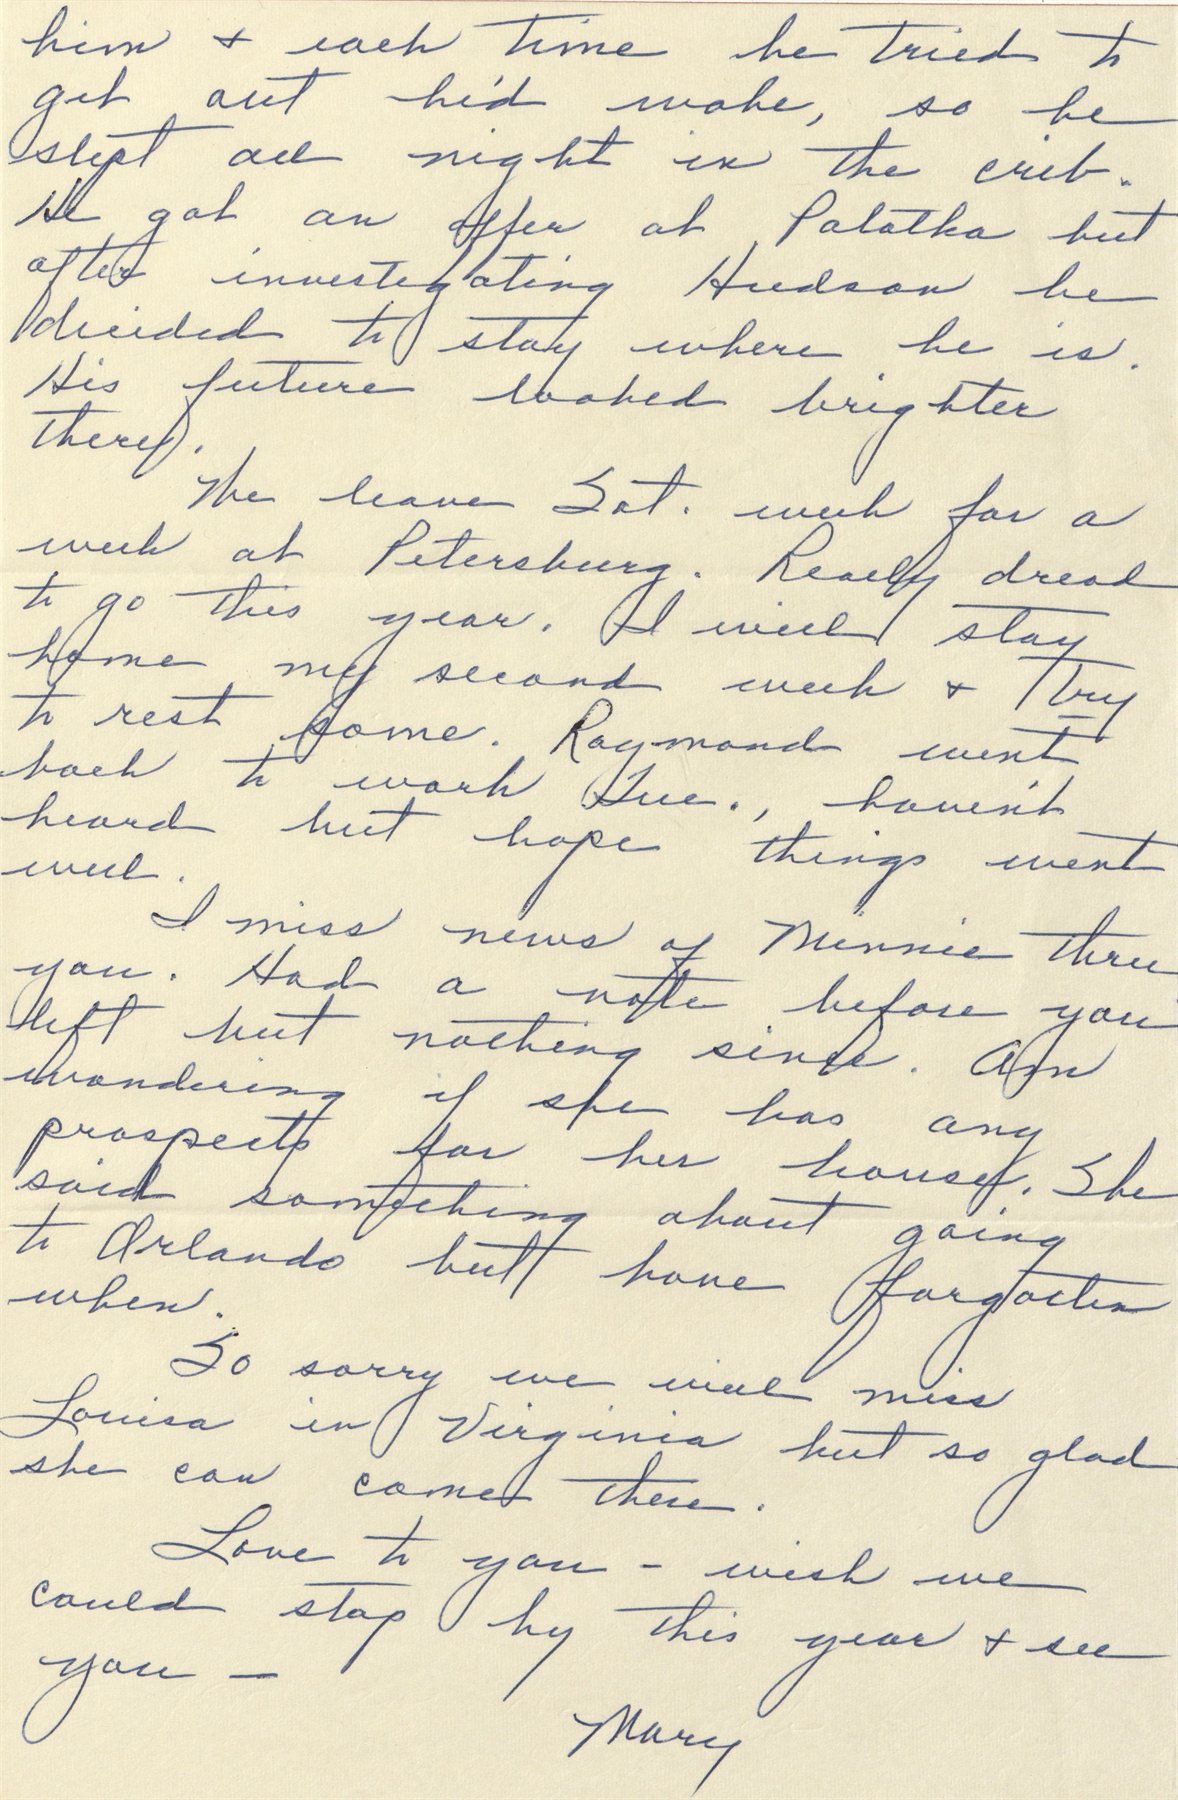 him + each time he tried to
get out he'd wake, so he
slept all night in the crib.
He got an offer at Palatka but
after investigating Hudson he
decided to stay where he is.
His future looked brighter
there.
We leave Sat. week for a
week at Petersburg. Really dread
to go this year. I will stay
home my second week + try
to rest some. Raymond went
back to work Tue., haven't
heard but hope things went
well.
I miss news of Minnie thru
you. Had a note before you
left but nothing since. Am
wondering if she has any
prospects for her house. She
said something about going
to Orlando but have forgotten
when.
So sorry we will miss
Louisa in Virginia but so glad
she can come there.
Love to you - wish we
could stop by this year + see
you -
Mary